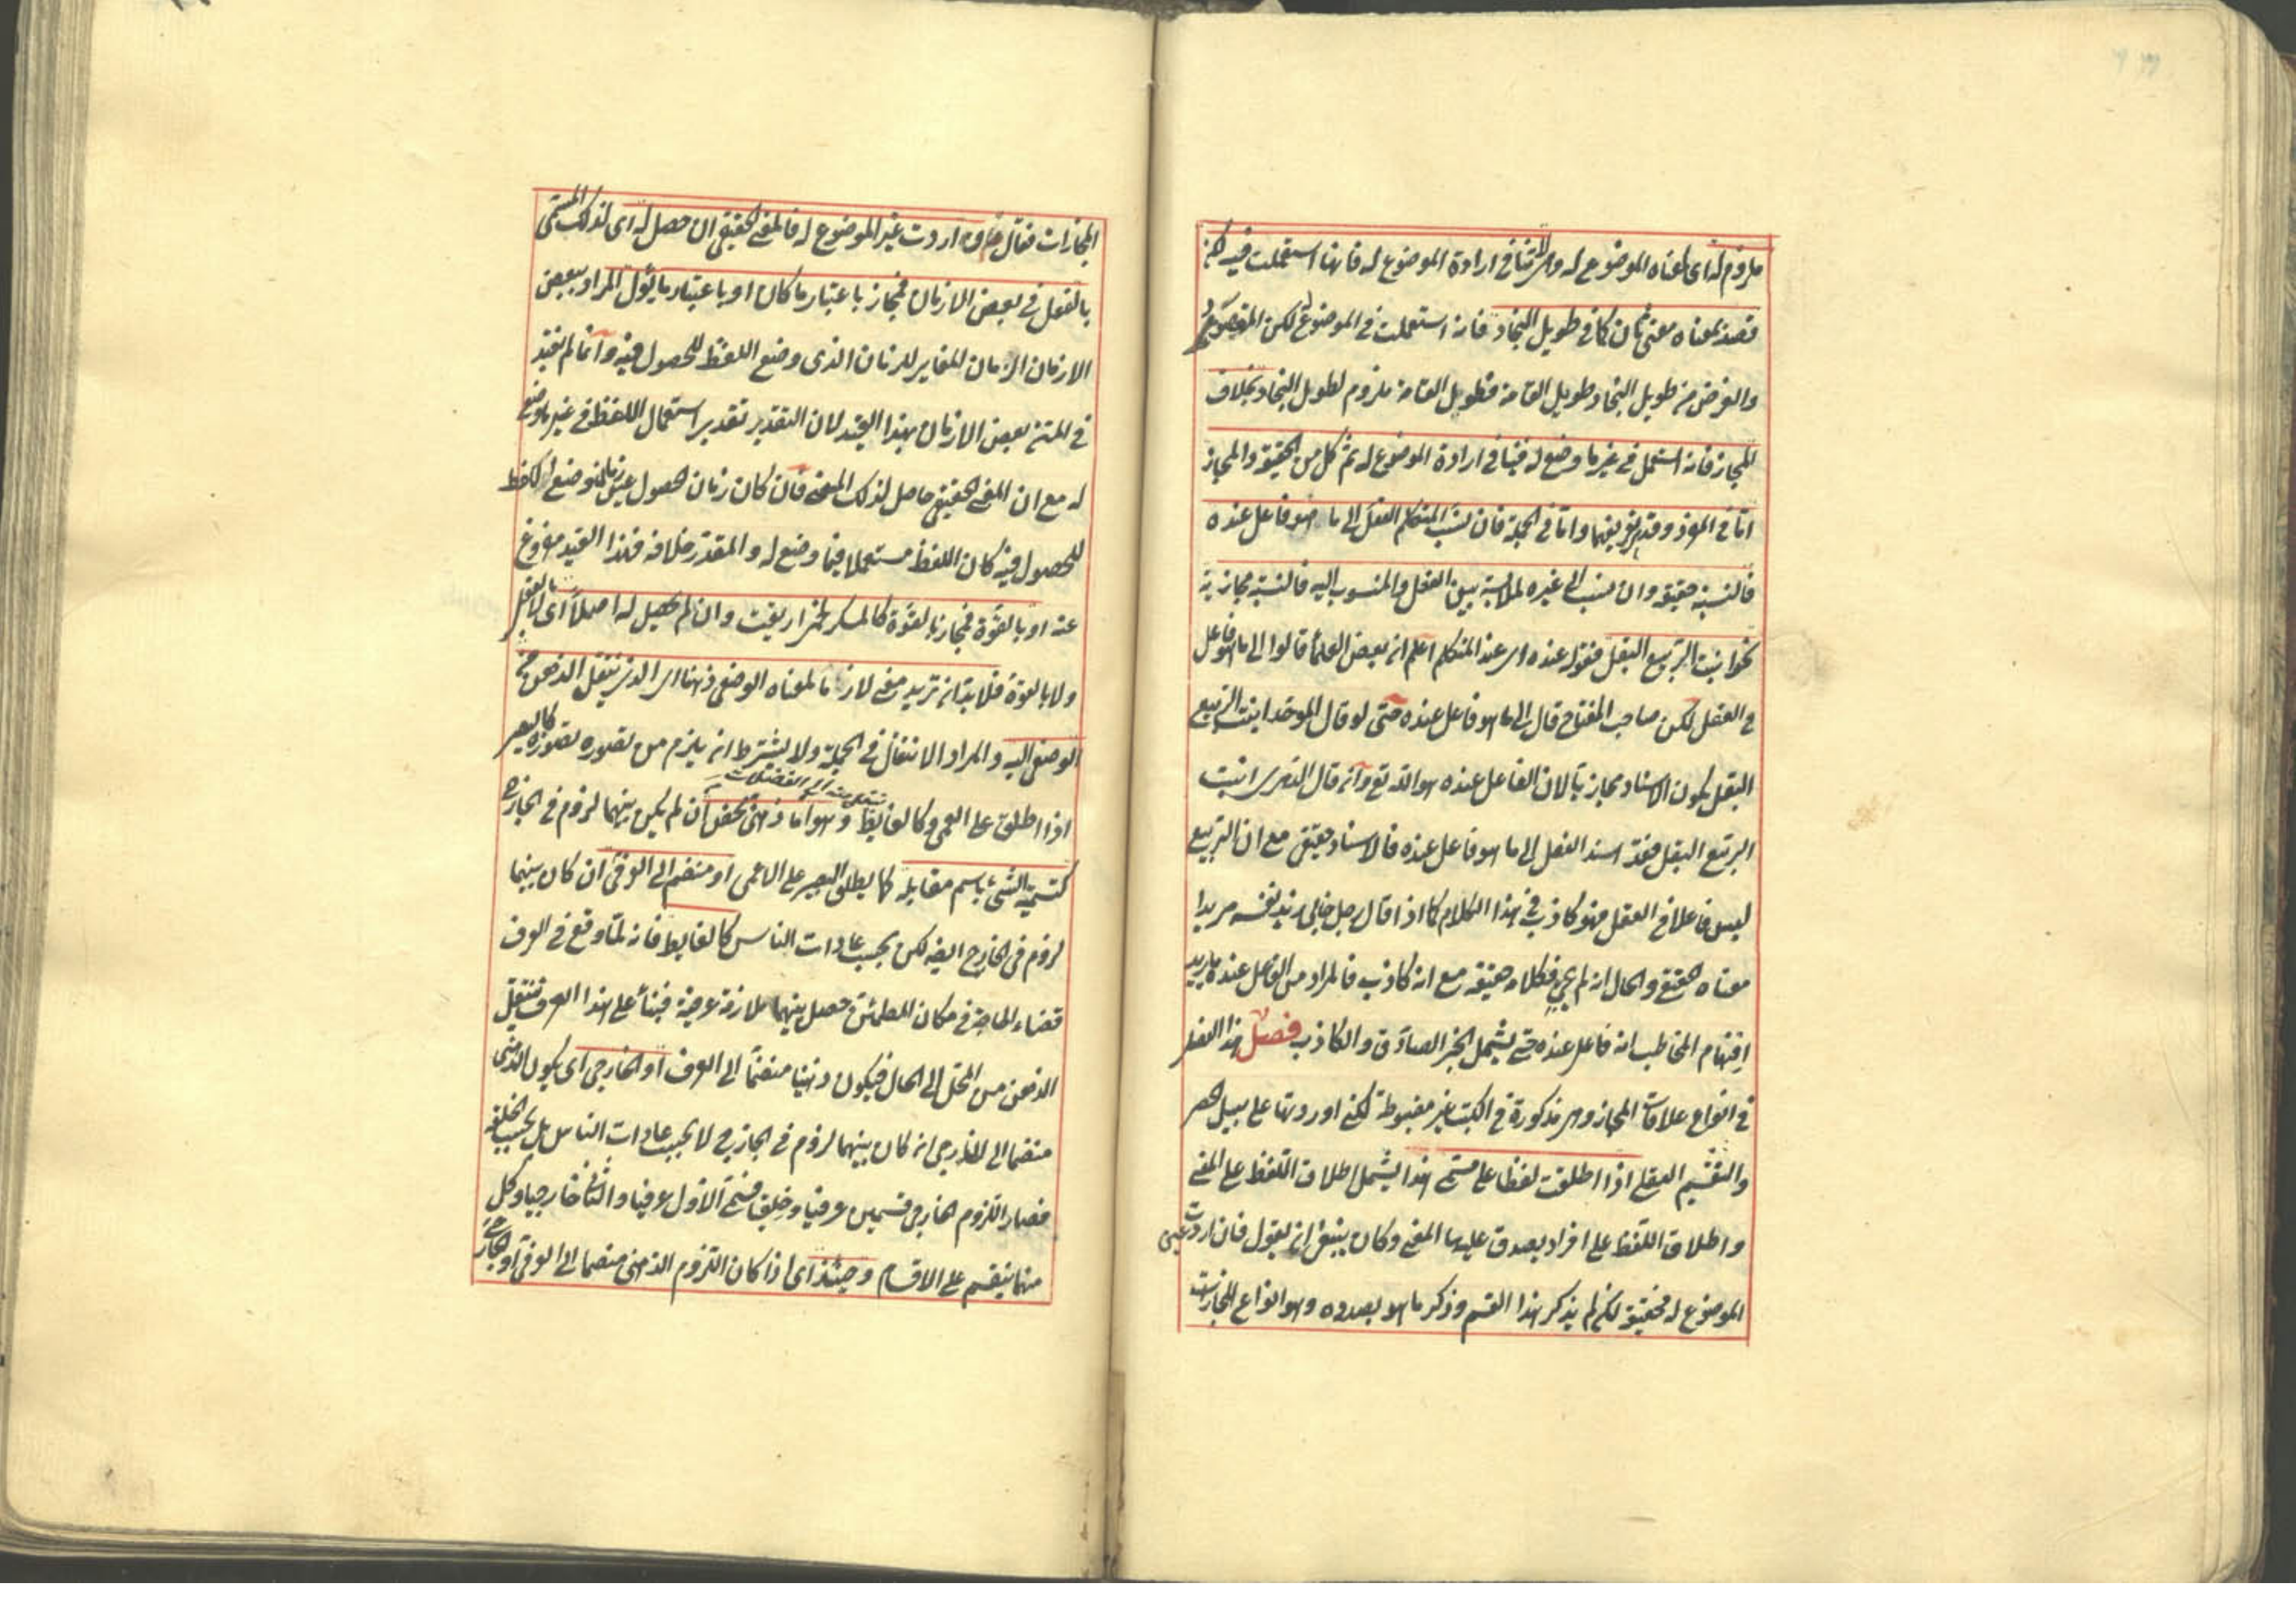 ملزوم له اى لمعناه الموضوع له وهى لا تنافى ارادة الموضوع له فانها استعملت فيه لكن
قصد بمعناه معنى ثان كما فى طويل النجاد فانه استعملت فى الموضوع له لكن المقصود
والغرض من طويل النجاد طويل القامة فطويل القامة ملزوم لطويل النجاد بخلاف
المجاز فانه استعمل فى غير ما وضع له فينافى ارادة الموضوع له ثم كل من الحقيقة والمجاز
اما فى المفرد وقد مر تعريفهما واما فى الجملة فان نسب المتكلم الفعل الى ما هو فاعل عنده
فالنسبة حقيقة وان نسب الى غيره لملابسة بين الفعل والمنسوب اليه فالنسبة مجازية
نحو انبت الربيع البقل فقوله عنده اى عند المتكلم اعلم ان بعض العلماء قالوا الى ما هو فاعل
فى العقل لكن صاحب المفتاح قال الى ما هو فاعل عنده حتى لو قال الموحد انبت الربيع
البقل يكون الاسناد مجازيا لان الفاعل عنده هو الله تع وان قال الدهرى انبت
الربيع البقل فقد اسند الفعل الى ما هو فاعل عنده فالاسناد حقيقى مع ان الربيع
ليس فاعلا فى العقل فهو كاذب فى هذا الكلام كما اذا قال رجل جاءنى زيد نفسه مريدا
معناه الحقيقى والحال انه لم يجئ فكلامه حقيقة مع انه كاذب فالمراد من الفاعل عنده ما يريد
افهام المخاطب انه فاعل عنده حتى يشمل الخبر الصادق والكاذب فصل هذا الفصل
فى انواع علاقات المجاز وهى مذكورة فى الكتب غير مضبوطة لكنى اوردتها على سبيل الحصر
والتقسيم العقلى اذا اطلقت لفظا على مسمى هذا يشمل اطلاق اللفظ على المعنى
واطلاق اللفظ على افراد يصدق عليها المعنى وكان ينبغى ان يقول فان اردت عين
الموضوع له فحقيقة لكن لم يذكر هذا القسم وذكر ما هو بصدده وهو انواع المجازات
المجازات فقال واردت غير الموضوع له فالمعنى الحقيقى ان حصل له اى لذلك المسمى
بالفعل فى بعض الازمان فمجاز باعتبار ما كان او باعتبار ما يؤل المراد ببعض
الازمان الزمان المغاير للزمان الذى وضع اللفظ للحصول فيه وانما لم يقيد
فى المتن بعض الازمان بهذا القيد لان التقدير تقدير استعمال اللفظ فى غير ما وضع
له مع ان المعنى الحقيقى حاصل لذلك المعنى فان كان زمان الحصول عين زمان وضع اللفظ
للحصول فيه كان اللفظ مستعملا فيما وضع له والمقدر خلافه فهذا القيد مفروغ
عنه او بالقوة فمجاز بالقوة كالمسكر لخمر اريقت وان لم يحصل له اصلا اى لا بالفعل
ولا بالقوة فلا بد ان تريد معنى لازما لمعناه الوضعى ذهنا اى الذى ينتقل الذهن من
الوضعى اليه والمراد الانتقال فى الجملة ولا يشترط ان يلزم من تصوره تصوره كالبصير
اذا اطلق على العمى وكالغايط وهو اما ذهنى محض ان لم يكن بينهما لزوم فى الخارج
كتسمية الشئ باسم مقابله كما يطلق البصير على الاعمى او منضم الى العرفى ان كان بينهما
لزوم فى الخارج ايضا لكن بحسب عادات الناس كالغايط فانه لما وقع فى العرف
قضاء الحاجة فى مكان المطمئن حصل بينهما ملازمة عرفية فبناء على هذا العرف ينتقل
الذهن من المحل الى الحال فيكون ذهنيا منضما الى العرف او الخارجى اى يكون الذهنى
منضما الى الخارجى ان كان بينهما لزوم فى الخارج لا بحسب عادات الناس بل بحسب الخلقة
فصار اللزوم الخارجى قسمين عرفيا وخلقيا فسمى الاول عرفيا والثانى خارجيا وكل
منهما ينقسم على الاقسام وحينئذ اى اذا كان اللزوم الذهنى منضما الى العرفى او الخارجى